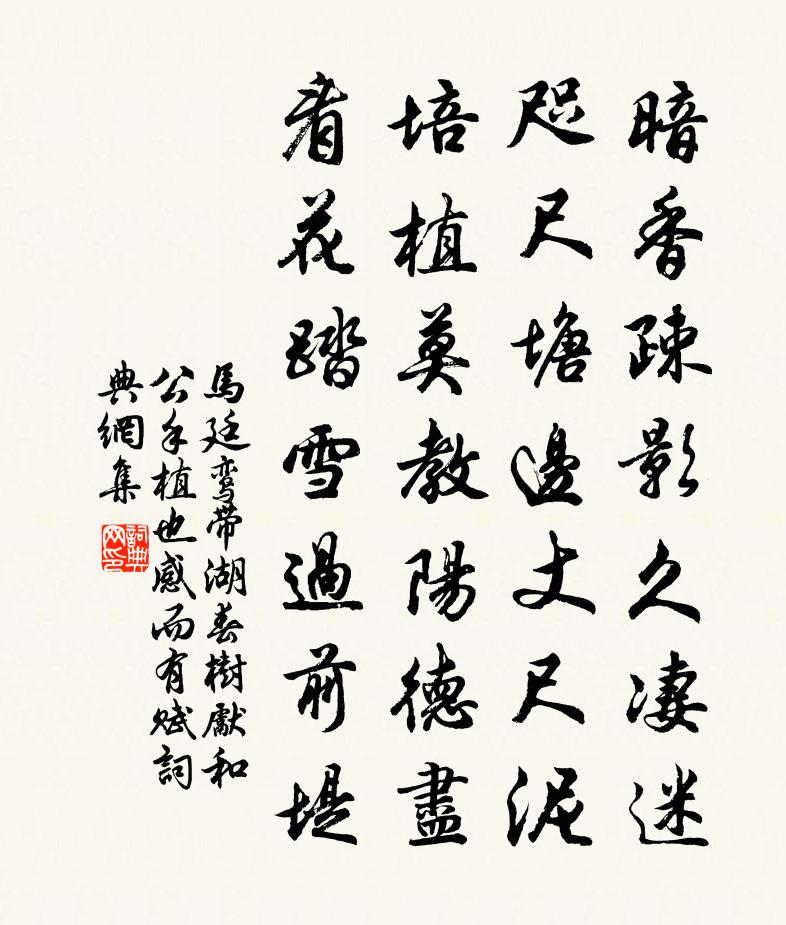 暗香疎影久淒迷
咫尺塘邊丈尺泥
培植莫教陽德盡
看花踏雪過前堤
馬廷鸞帶湖春樹獻和
公手植也感而有賦詞
典網集
詞典網印